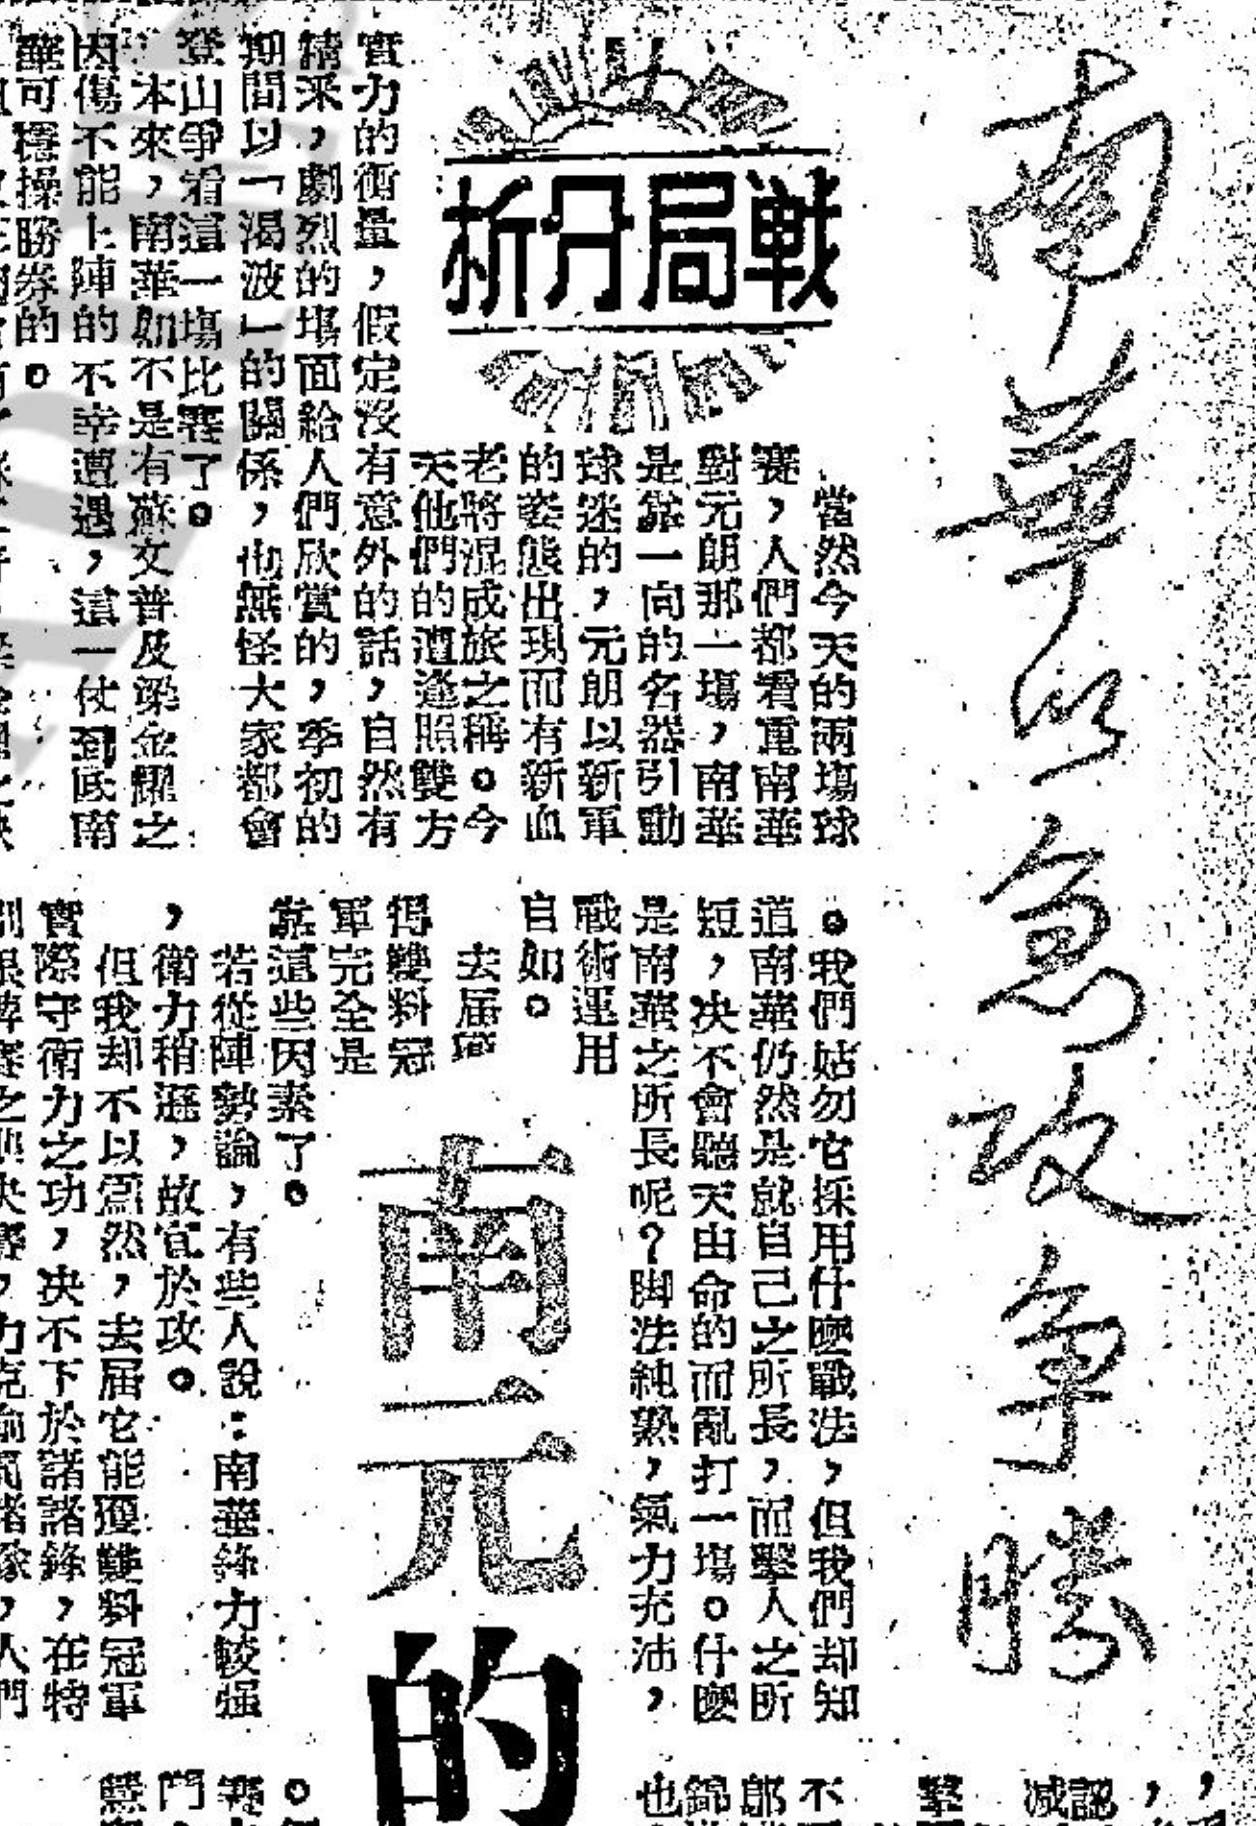 南華以急攻爭勝
戰局分析
當然今天的兩場球
賽，人們都看重南華
對元朗那一場，南華
是靠一向的名器引動
球迷的，元朗以新軍
的姿態出現而有新血
老將混成旅之稱。今
天他們的遭逢照雙方
實力的衡量，假定沒有意外的話，自然有
精采，劇烈的場面給人們欣賞的，季初的
期間以「渴波」的關係，也無怪大家都會
登山爭看這一場比賽了。
本來，南華如不是有蘇文普及梁金耀之
因傷不能上陣的不幸遭遇，這一仗到底南
華可穩操勝券的。
。我們姑勿它採用什麼戰法，但我們却知
道南華仍然是就自己之所長，而擊人之所
短，决不會聽天由命的而亂打一場。什麼
是南華之所長呢？脚法純熟，氣力充沛，
戰術運用
自如。
去届
得雙料冠
軍完全是
靠這些因素了。
若從陣勢論，有些人說：南華鋒力較强
，衛力稍遜，故宜於攻。
但我却不以爲然，去届它能獲雙料冠軍
實際守衛力之功，决不下於諸諸鋒，在特
南元的